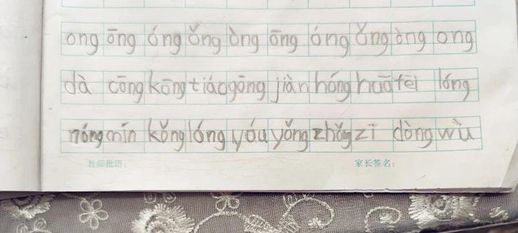 ong ōng óng ǒng òng ōng óng ǒng òng ong
dà cōng kōng tiáo gōng jiàn hóng huā fēi lóng
nóng mín kǒng lóng yóu yǒng zhǒng zǐ dòng wù
教师批语： 家长签名：